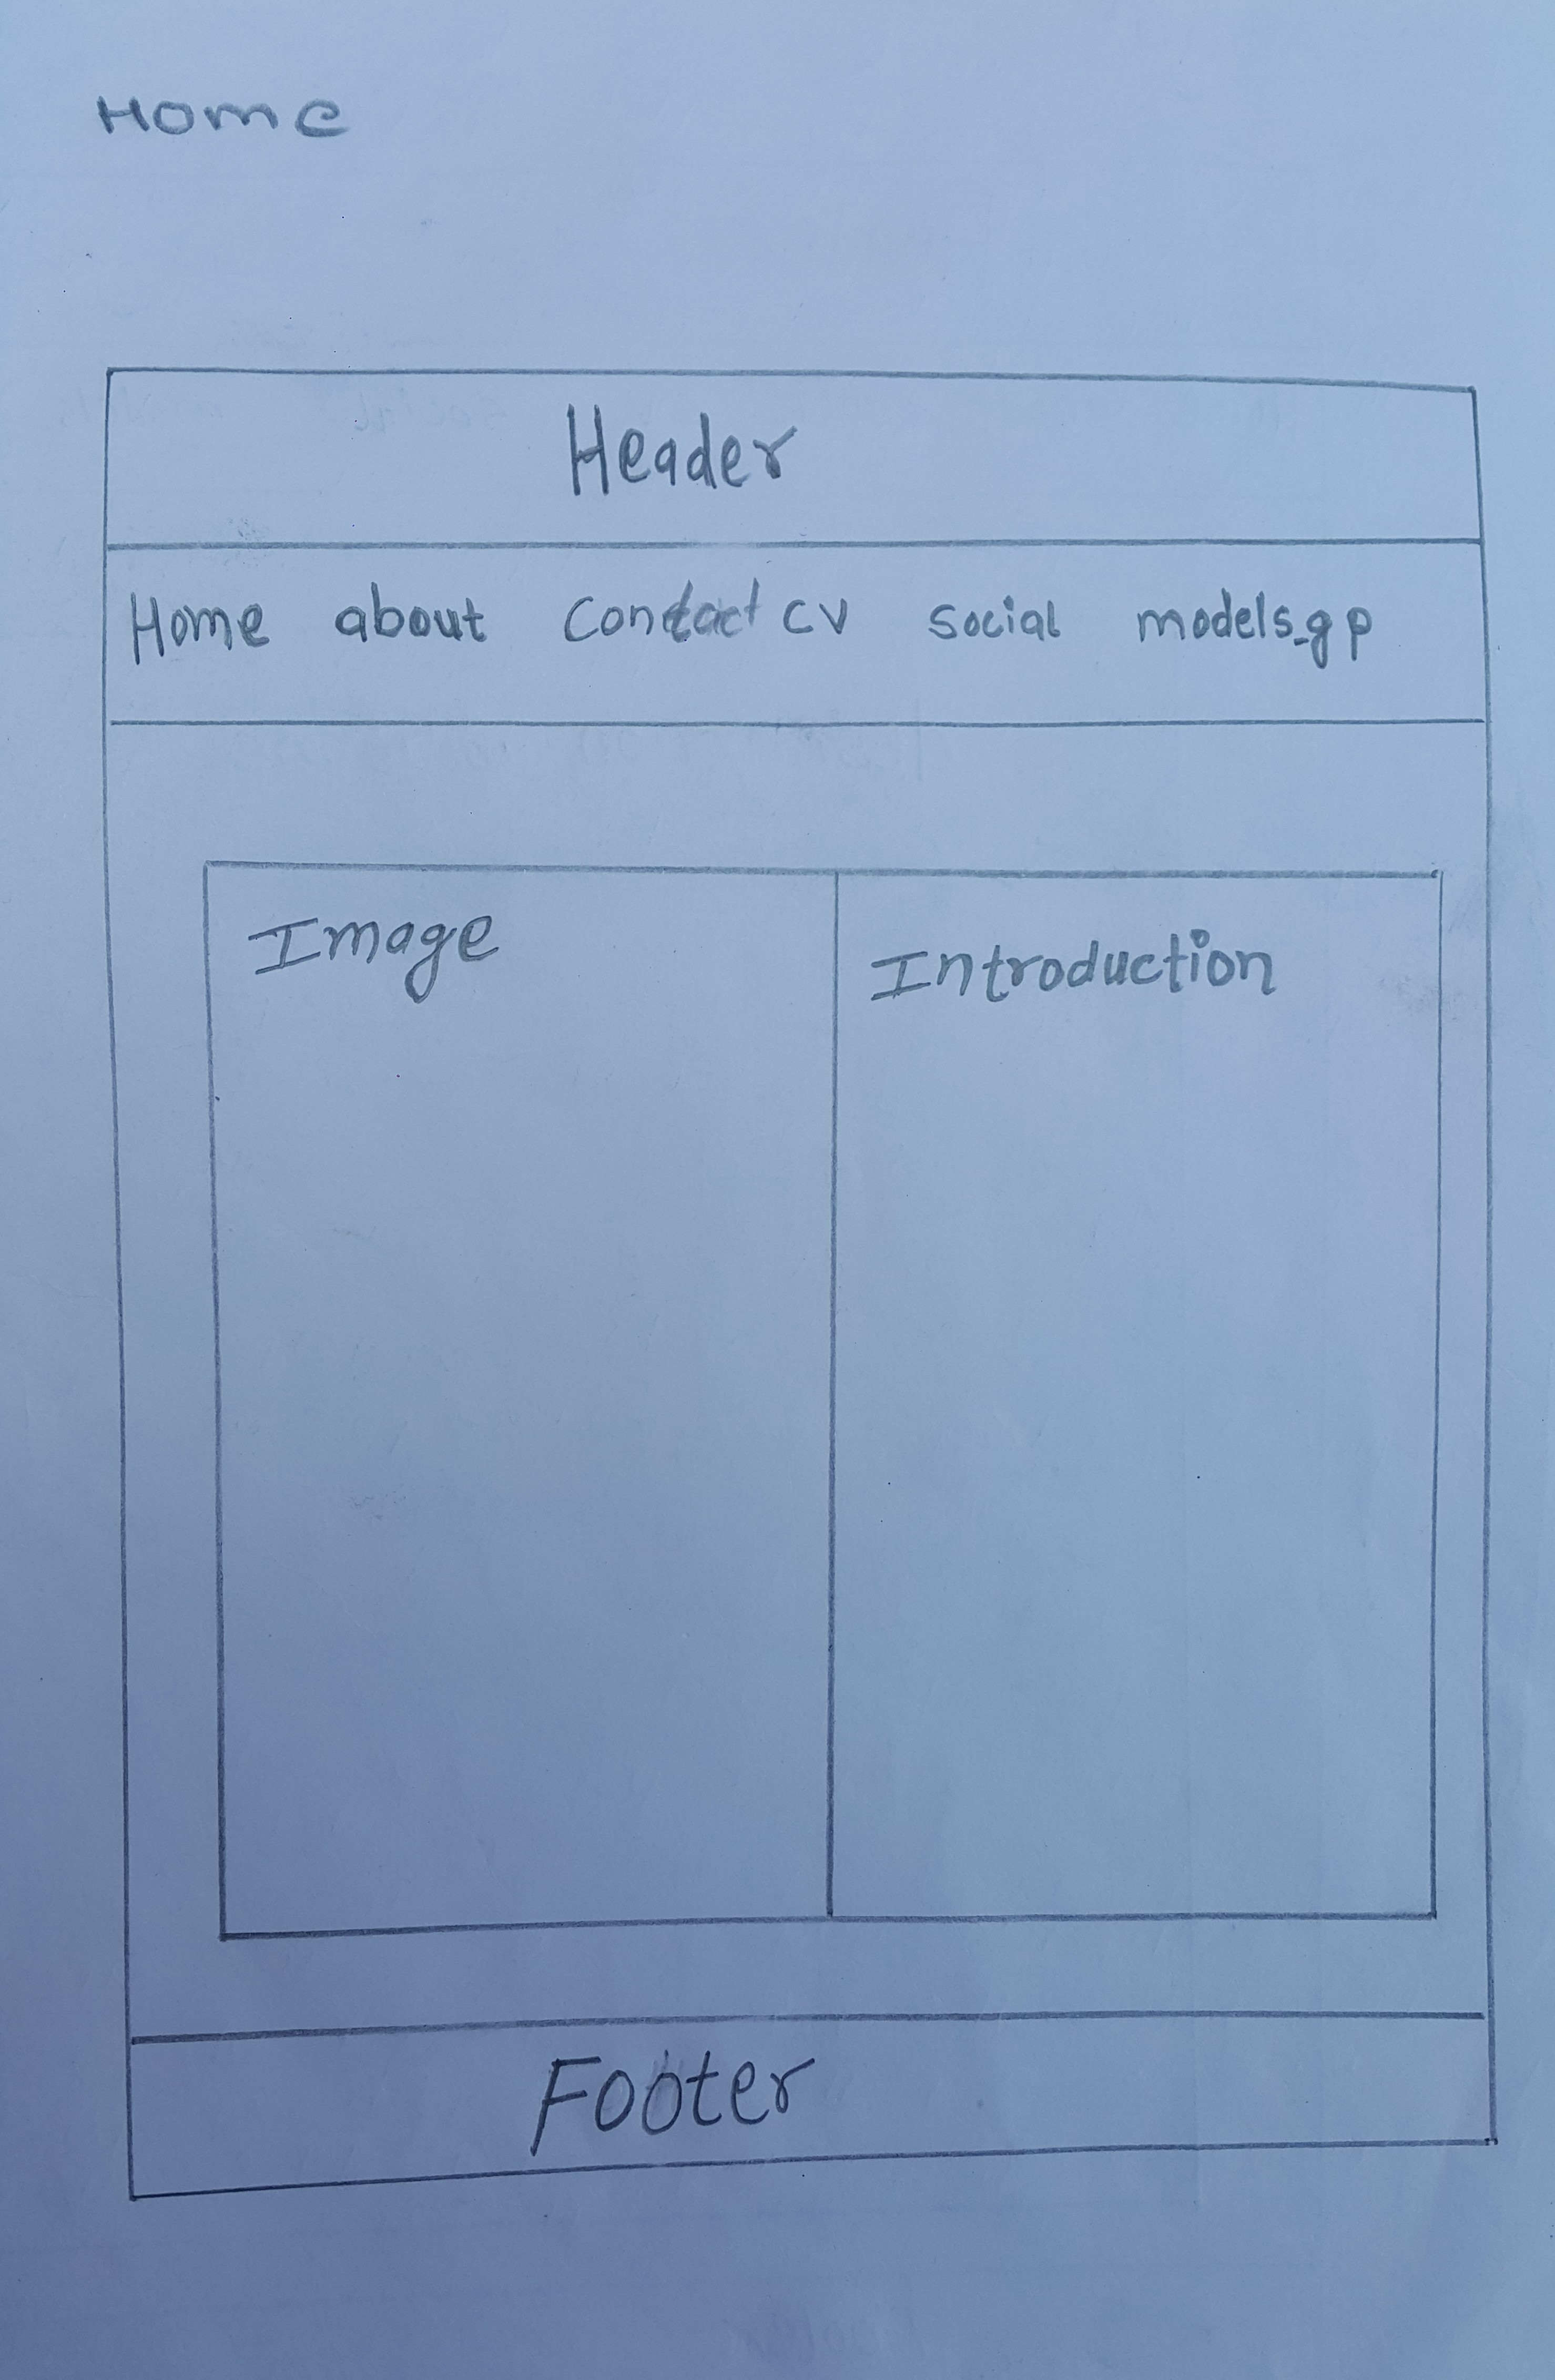 Home
Header
Home about Contact CV social models_gp
Image
Introduction
Footer